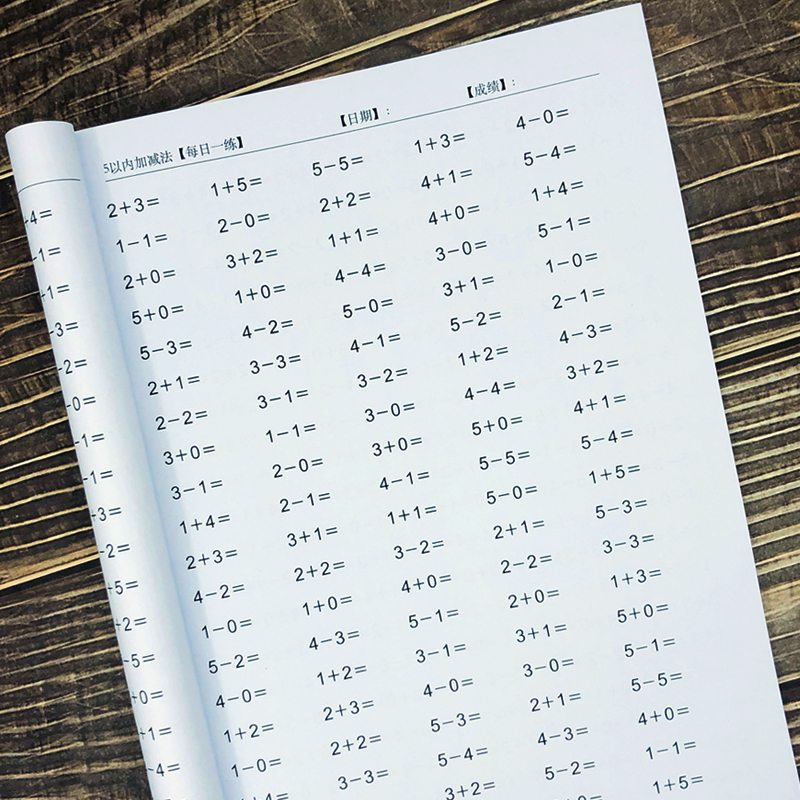 5以内加减法【每日一练】 【日期】: 【成绩】:
2+3= 1+5= 5-5= 1+3= 4-0=
1-1= 2-0= 2+2= 4+1= 5-4=
2+0= 3+2= 1+1= 4+0= 1+4=
5+0= 1+0= 4-4= 3-0= 5-1=
5-3= 4-2= 5-0= 3+1= 1-0=
2+1= 3-3= 4-1= 5-2= 2-1=
2-2= 3-1= 3-2= 1+2= 4-3=
3+0= 1-1= 3-0= 4-4= 3+2=
3-1= 2-0= 3+0= 5+0= 4+1=
1+4= 2-1= 4-1= 5-5= 5-4=
2+3= 3+1= 1+1= 5-0= 1+5=
4-2= 2+2= 3-2= 2+1= 5-3=
1-0= 1+0= 4+0= 2-2= 3-3=
5-2= 4-3= 5-1= 2+0= 1+3=
4-0= 1+2= 3-1= 3+1= 5+0=
1+2= 2+3= 4-0= 3-0= 5-1=
1-0= 2+2= 5-3= 2+1= 5-5=
3-3= 5-4= 4-3= 4+0=
3+2= 5-2= 1-1=
1+5=